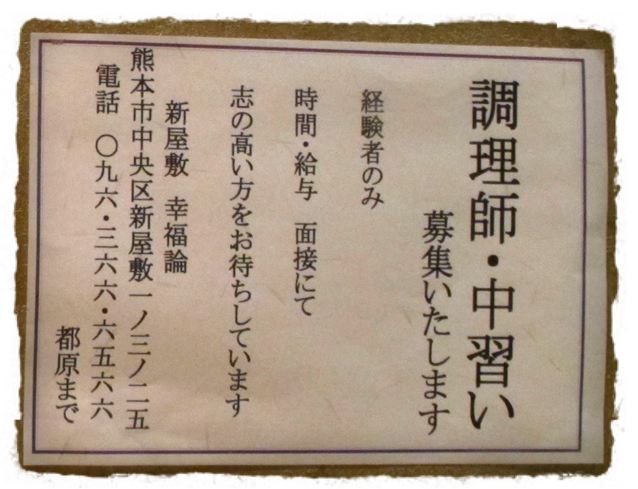 調理師・中習い
募集いたします
経験者のみ
時間・給与 面接にて
志の高い方をお待ちしています
新屋敷 幸福論
熊本市中央区新屋敷一ノ三ノ二五
電話 〇九六・三六六・六五六六
都原まで